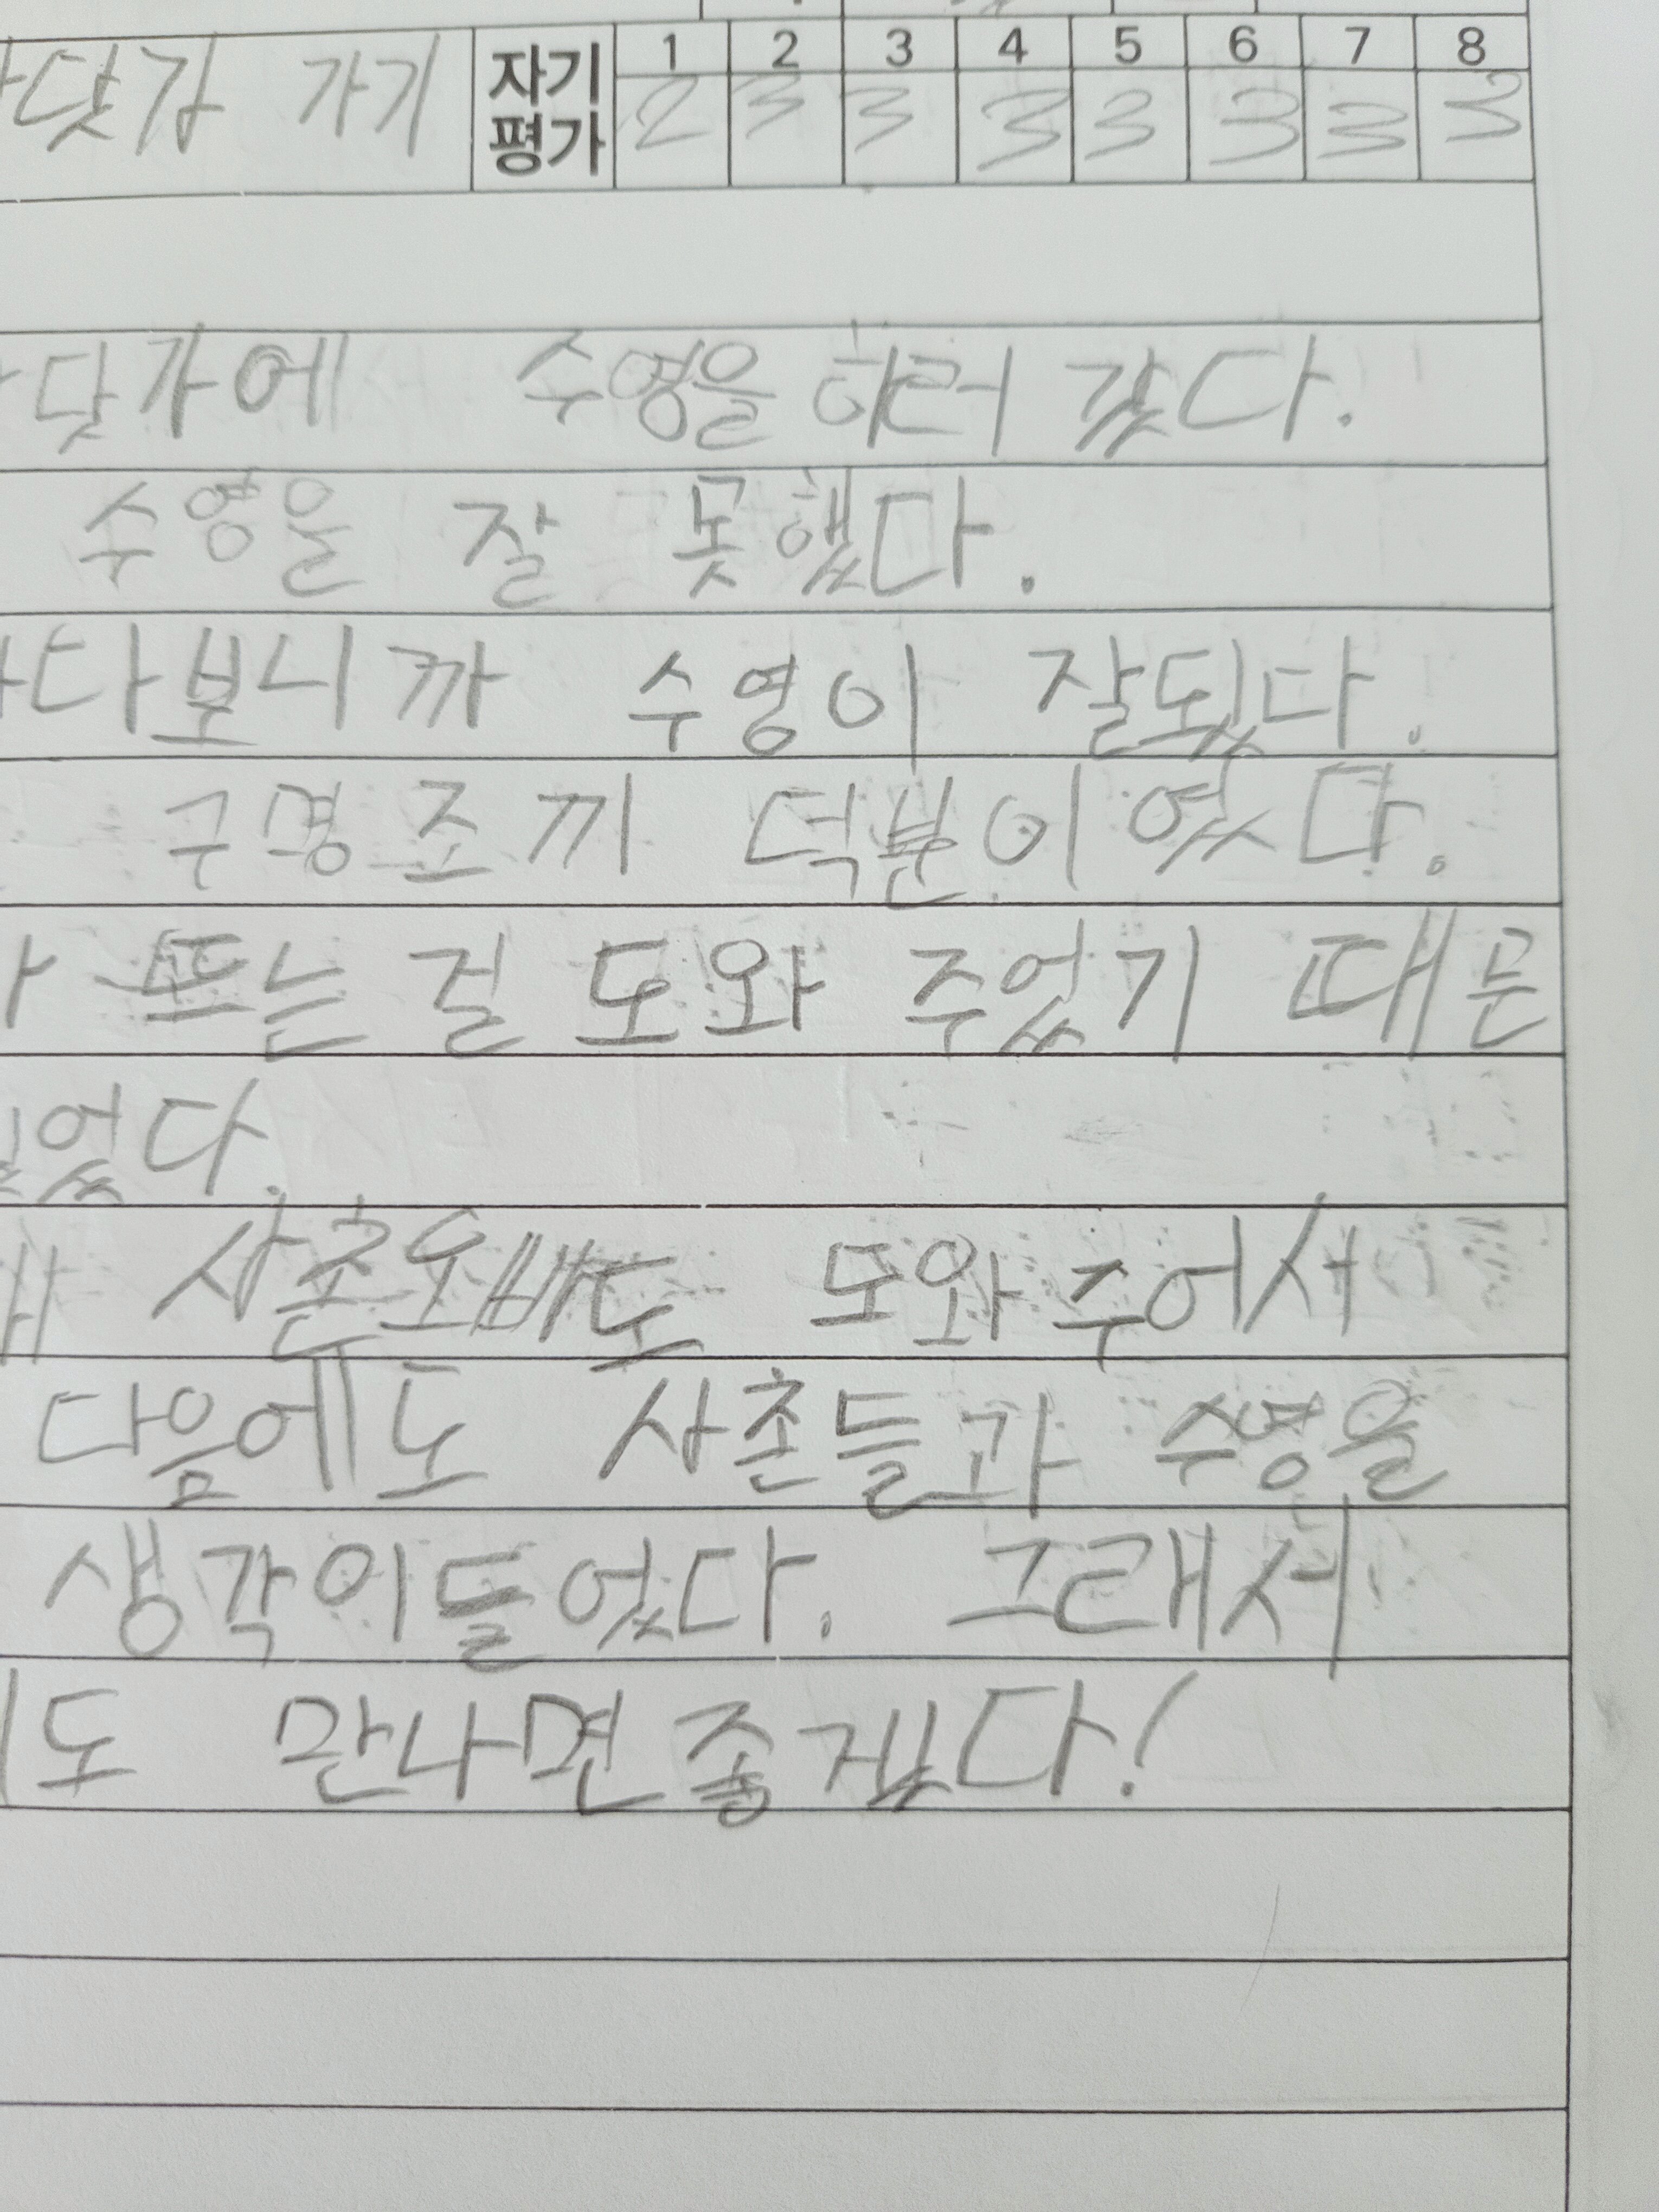 닷가 가기 자기 평가 1 2 3 4 5 6 7 8
2 3 3 3 3 3 3 3
닷가에 수영을 하러 갔다.
수영을 잘 못했다.
다보니까 수영이 잘됬다.
구명조끼 덕분이였다.
뜨는 걸 도와 주었기 때문
었다.
사촌오빠도 도와주어서
다음에도 사촌들과 수영을
생각이들었다. 그래서
도 만나면좋겠다!